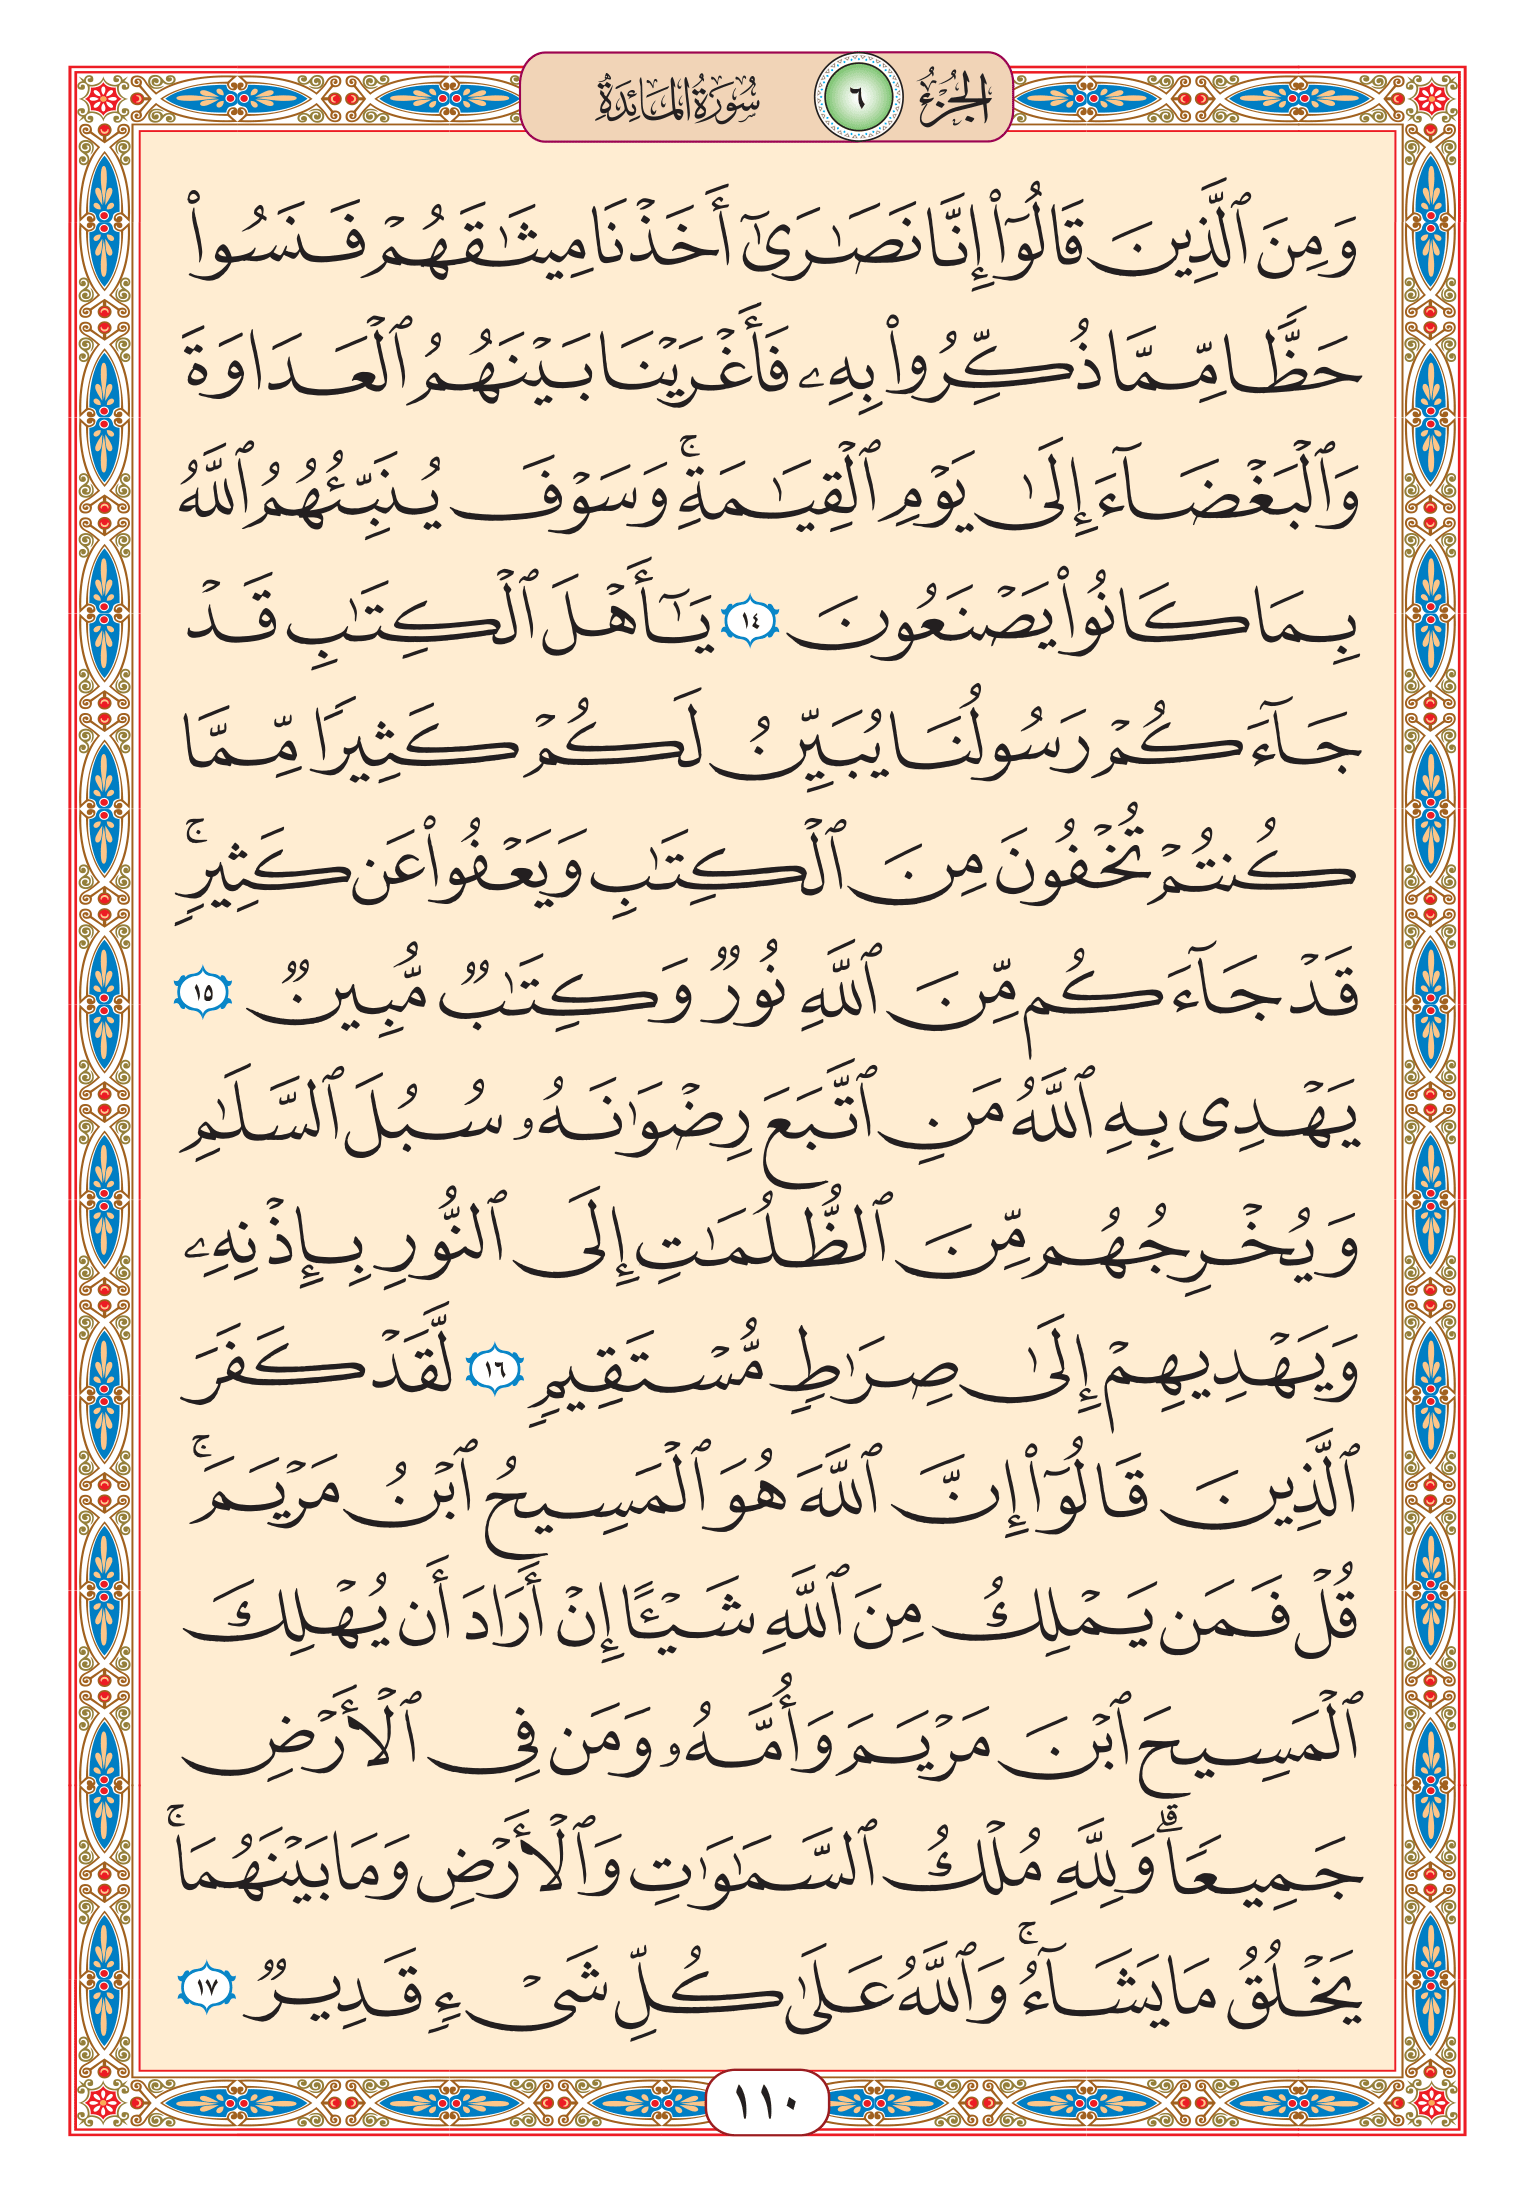 الجزء ٦ سورة المائدة
وَمِنَ ٱلَّذِينَ قَالُوٓا۟ إِنَّا نَصَٰرَىٰٓ أَخَذْنَا مِيثَٰقَهُمْ فَنَسُوا۟
حَظًّا مِّمَّا ذُكِّرُوا۟ بِهِۦ فَأَغْرَيْنَا بَيْنَهُمُ ٱلْعَدَاوَةَ
وَٱلْبَغْضَآءَ إِلَىٰ يَوْمِ ٱلْقِيَٰمَةِ ۚ وَسَوْفَ يُنَبِّئُهُمُ ٱللَّهُ
بِمَا كَانُوا۟ يَصْنَعُونَ ١٤ يَٰٓأَهْلَ ٱلْكِتَٰبِ قَدْ
جَآءَكُمْ رَسُولُنَا يُبَيِّنُ لَكُمْ كَثِيرًا مِّمَّا
كُنتُمْ تُخْفُونَ مِنَ ٱلْكِتَٰبِ وَيَعْفُوا۟ عَن كَثِيرٍ ۚ
قَدْ جَآءَكُم مِّنَ ٱللَّهِ نُورٌ وَكِتَٰبٌ مُّبِينٌ ١٥
يَهْدِى بِهِ ٱللَّهُ مَنِ ٱتَّبَعَ رِضْوَٰنَهُۥ سُبُلَ ٱلسَّلَٰمِ
وَيُخْرِجُهُم مِّنَ ٱلظُّلُمَٰتِ إِلَى ٱلنُّورِ بِإِذْنِهِۦ
وَيَهْدِيهِمْ إِلَىٰ صِرَٰطٍ مُّسْتَقِيمٍ ١٦ لَّقَدْ كَفَرَ
ٱلَّذِينَ قَالُوٓا۟ إِنَّ ٱللَّهَ هُوَ ٱلْمَسِيحُ ٱبْنُ مَرْيَمَ ۚ
قُلْ فَمَن يَمْلِكُ مِنَ ٱللَّهِ شَيْـًٔا إِنْ أَرَادَ أَن يُهْلِكَ
ٱلْمَسِيحَ ٱبْنَ مَرْيَمَ وَأُمَّهُۥ وَمَن فِى ٱلْأَرْضِ
جَمِيعًا ۗ وَلِلَّهِ مُلْكُ ٱلسَّمَٰوَٰتِ وَٱلْأَرْضِ وَمَا بَيْنَهُمَا ۚ
يَخْلُقُ مَا يَشَآءُ ۚ وَٱللَّهُ عَلَىٰ كُلِّ شَىْءٍ قَدِيرٌ ١٧
١١٠